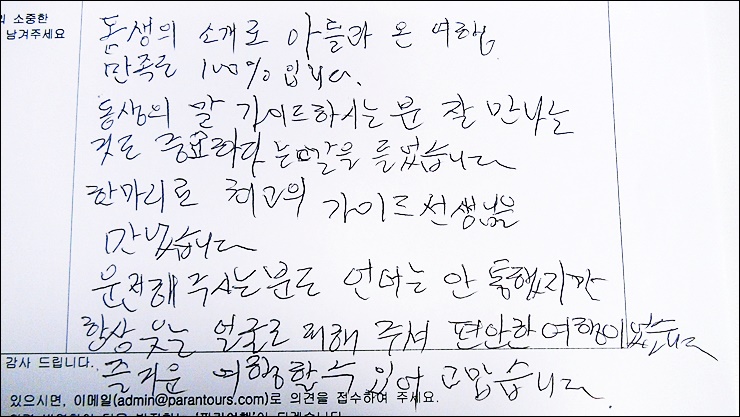 의 소중한
남겨주세요
동생의 소개로 아들과 온 여행
만족도 100%입니다.
동생의 말 가이드하시는 분 잘 만나는
것도 중요하다 는 말을 들었습니다
한마디로 최고의 가이드 선생님을
만났습니다
운전해 주시는분도 언어는 안 통했지만
항상 웃는 얼굴로 대해 주셔 편안한 여행이었습니다
감사 드립니다.
즐거운 여행할수 있어 고맙습니다.
있으시면, 이메일(admin@parantours.com)로 의견을 접수하여 주세요.